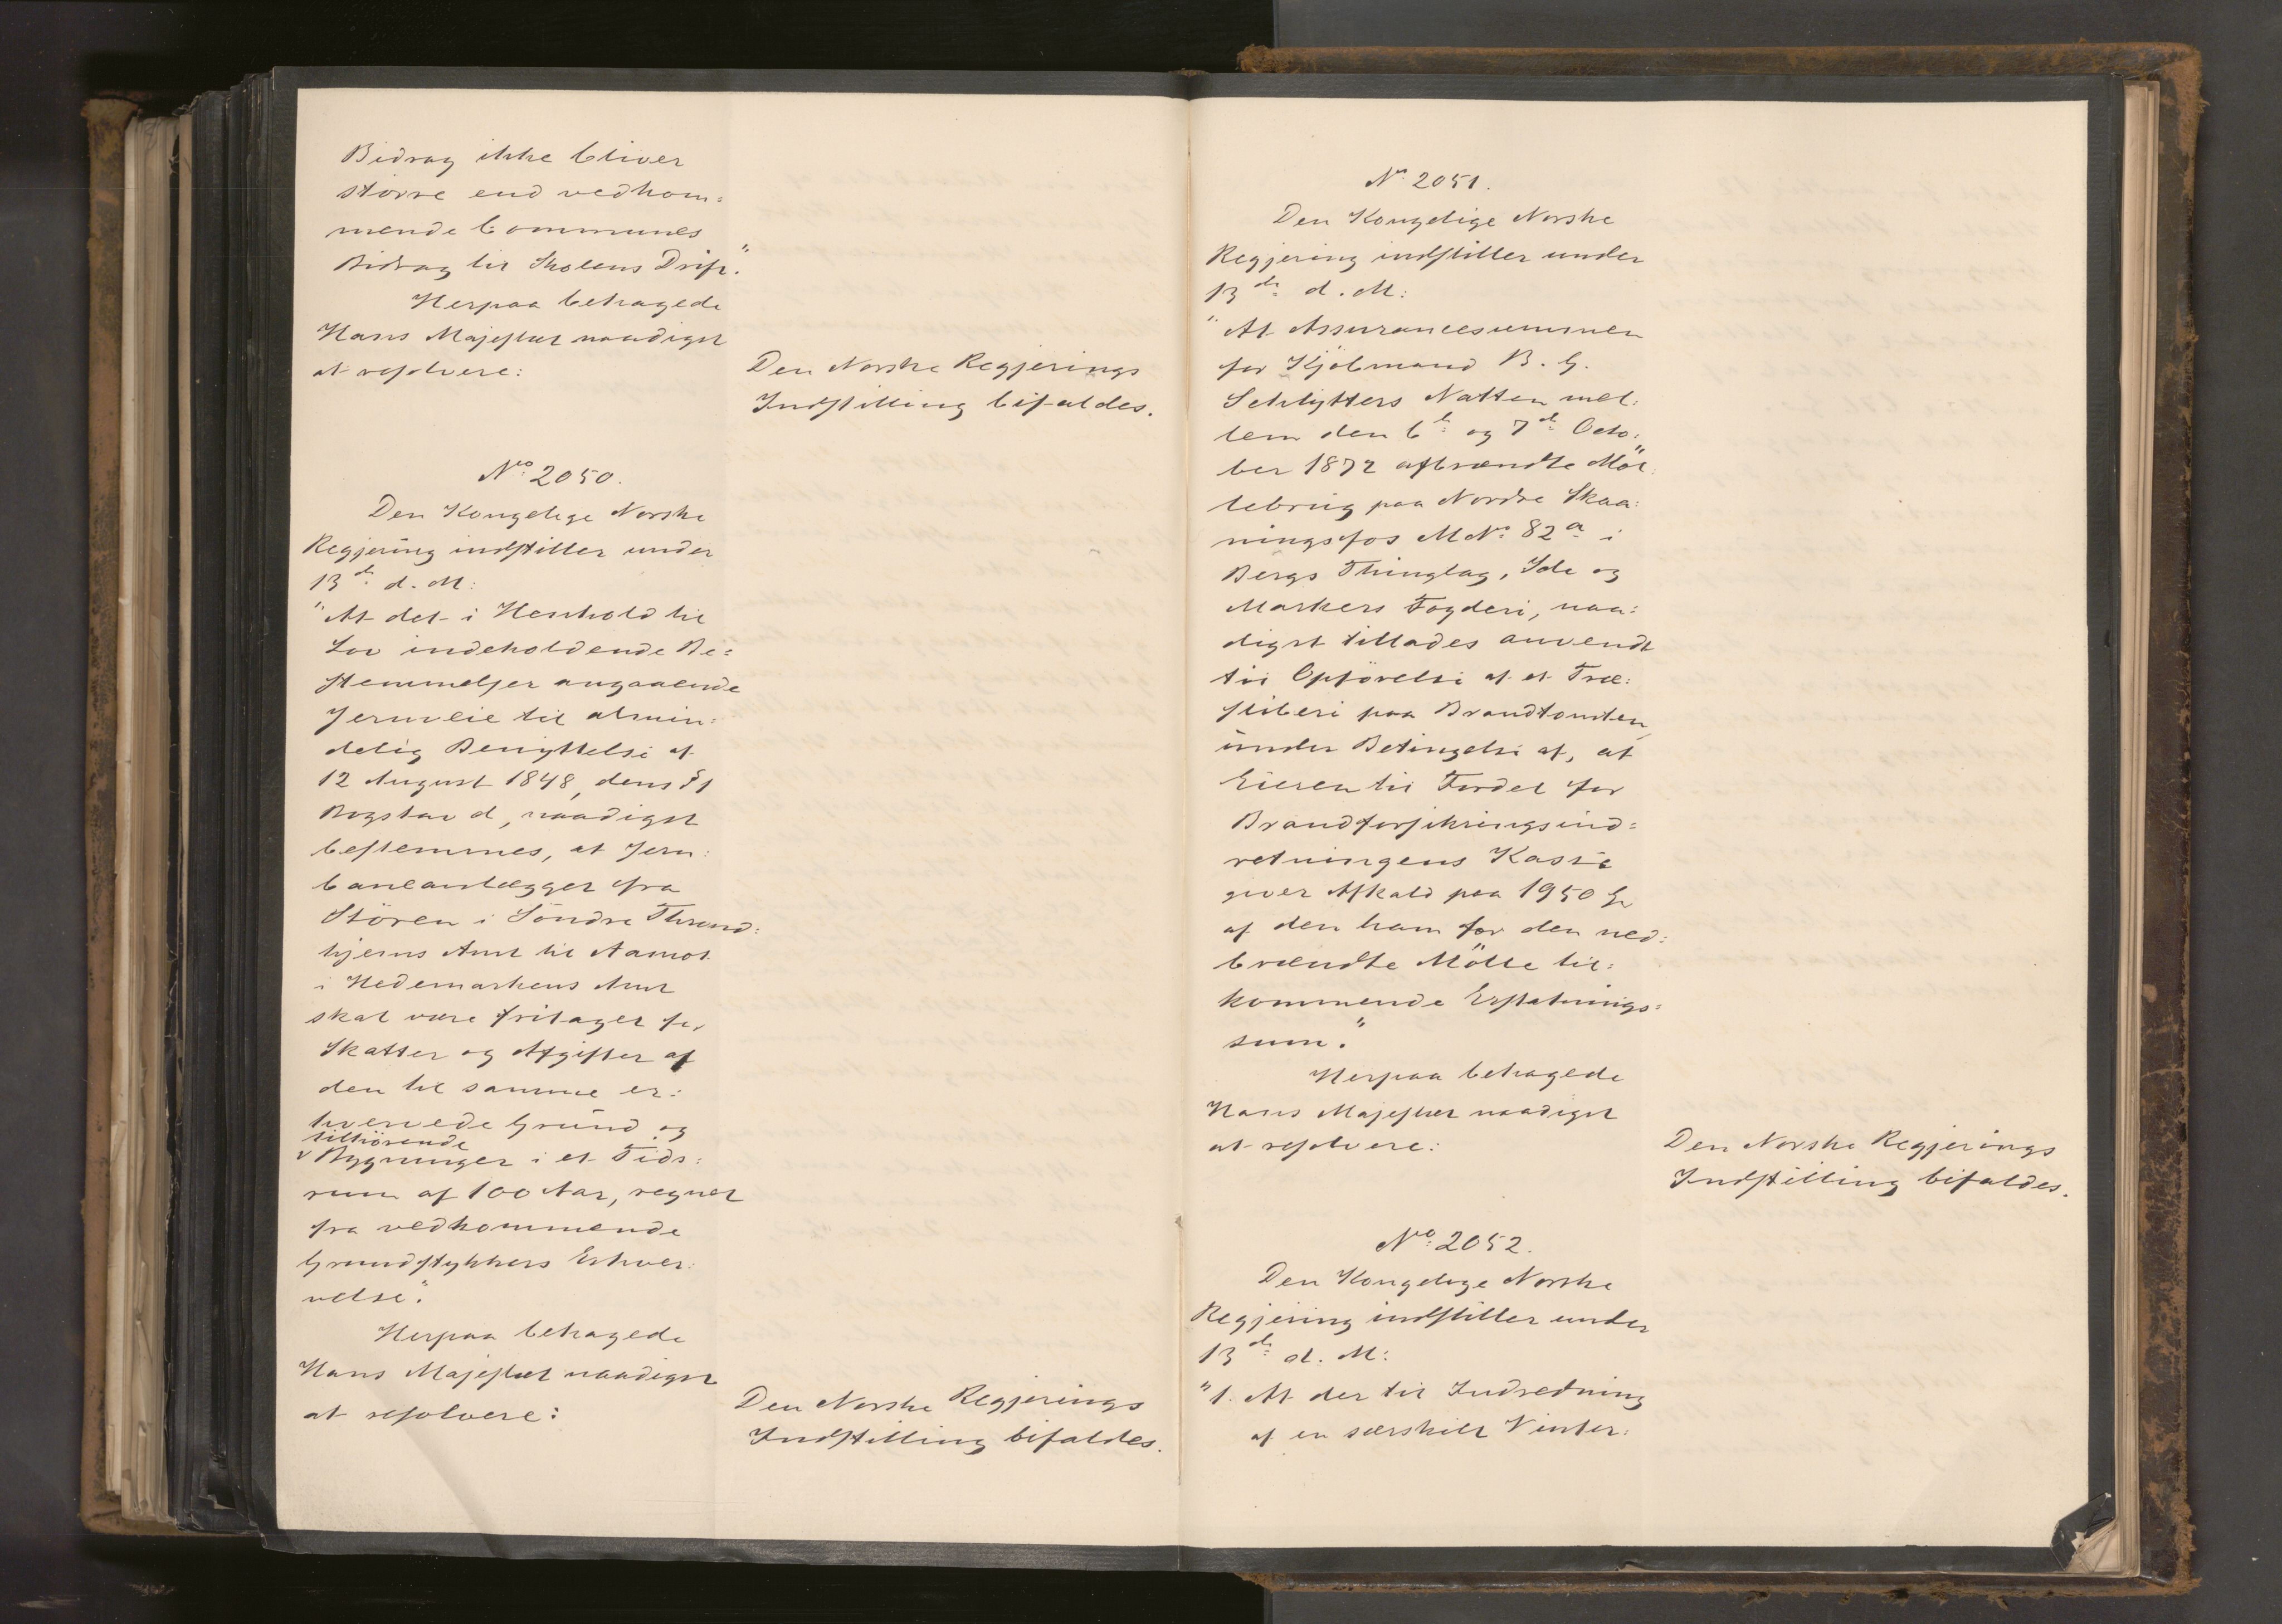 Bidrag ikke bliver
større end vedkom=
mende Communes
Bidrag til Skolens Drift."
Herpaa behagede
Hans Majestæt naadigst
at resolvere:
Den Norske Regjerings
Indstilling bifaldes.
No. 2050.
Den Kongelige Norske
Regjering indstiller under
13de d. M:
"At det i Henhold til
Lov indeholdende Be=
stemmelser angaaende
Jernveie til almin=
delig Benyttelse af
12 August 1848, dens § 1
Bogstav d, naadigst
bestemmes, at Jern=
baneanlægget fra
Støren i Søndre Thrond=
hjems Amt til Aamot
i Hedemarkens Amt
skal være fritaget for
Skatter og Afgifter af
den til samme er=
hvervede Grund og
tilhørende
v Bygninger i et Tids=
rum af 100 Aar, regnet
fra vedkommende
Grundstykkers Erhver=
velse."
Herpaa behagede
Hans Majestæt naadigst
at resolvere:
Den Norske Regjerings
Indstilling bifaldes.
No. 2051.
Den Kongelige Norske
Regjering indstiller under
13de d. M:
"At Assurancesummen
for Kjøbmand B. G.
Schlytters Natten mel=
lem den 6te og 7de Octo=
ber 1872 afbrændte Möl=
lebrug paa Nordre Skaa=
ningsfos M No. 82a i
Bergs Thinglag, Ide og
Markers Fogderi, naa=
digst tillades anvendt
til Opførelse af et Træ=
sliberi paa Brandtomten,
under Betingelse af, at
Eieren til Fordel for
Brandforsikringsind=
retningens Kasse
giver Afkald paa 1950 Spd
af den ham for den ned=
brændte Mölle til=
kommende Erstatnings=
sum."
Herpaa behagede
Hans Majestæt naadigst
at resolvere:
Den Norske Regjerings
Indstilling bifaldes.
No. 2052.
Den Kongelige Norske
Regjering indstiller under
13de d. M:
"1. At der til Indredning
af en særskilt Vinter=